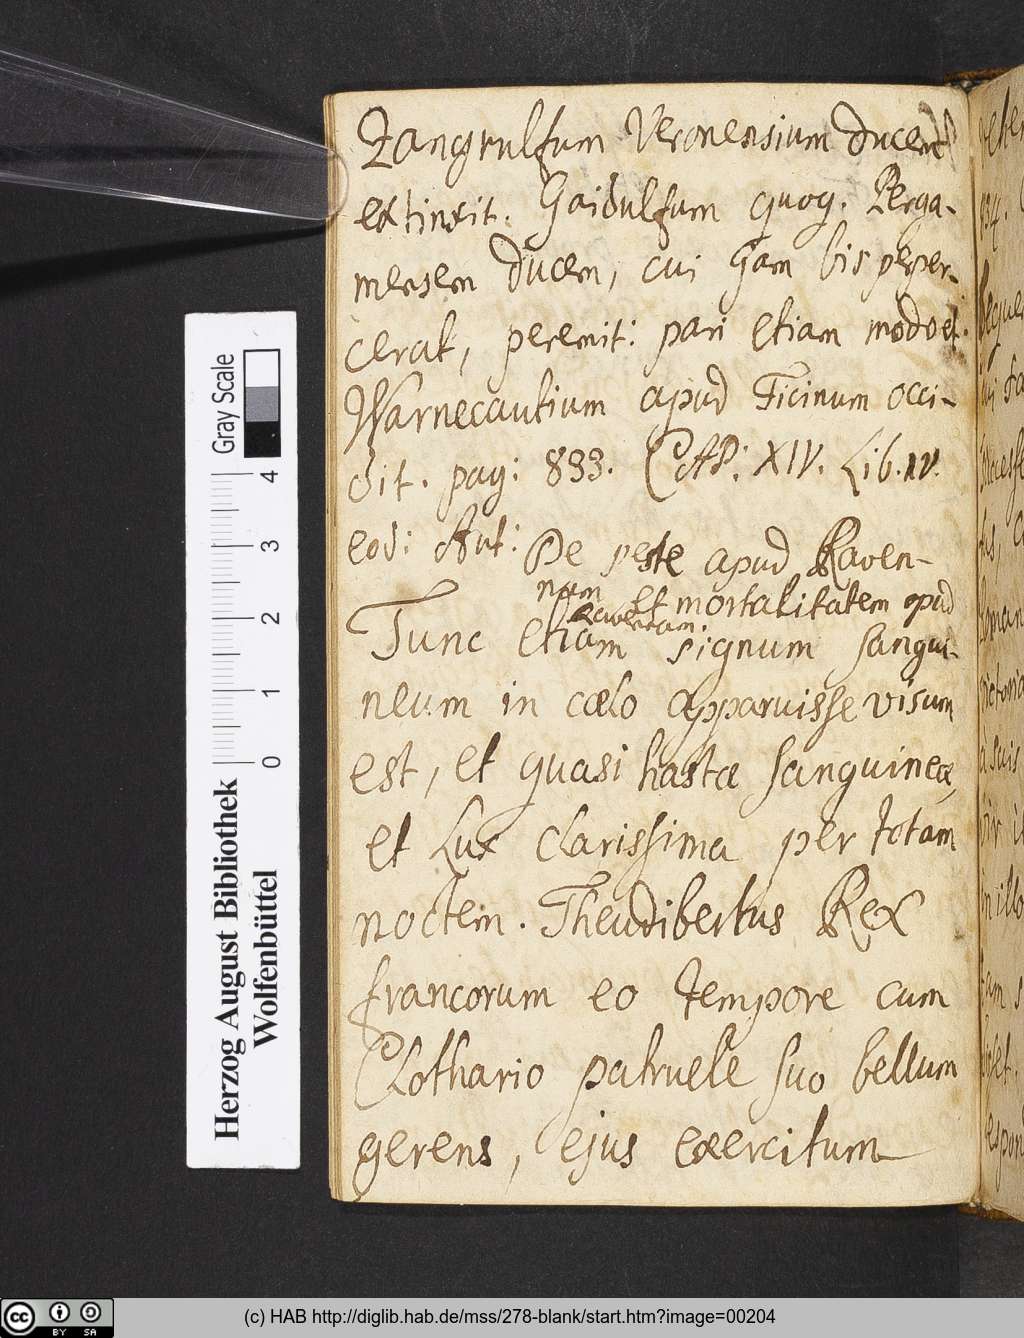 Zangrulfum Veronensium ducem
extinxit. Gaidulfum quoq. Perga-
mensem ducem, cui jam bis peper-
cerat, peremit: pari etiam modo et
Warnecautium apud Ticinum occi-
dit. pag: 833. CAP: XIV. Lib. IV.
eod: Aut: De peste apud Raven-
nam et mortalitatem apud
Veronam
Tunc etiam signum sangui-
neum in cælo apparuisse visum
est, et quasi hastæ sanguineæ,
et Lux clarissima per totam
noctem. Theudibertus Rex
francorum eo tempore cum
Clothario patruele suo bellum
gerens, ejus exercitum
Gray Scale
4
3
2
1
0
Herzog August Bibliothek
Wolfenbüttel
cc BY SA
(c) HAB http://diglib.hab.de/mss/278-blank/start.htm?image=00204